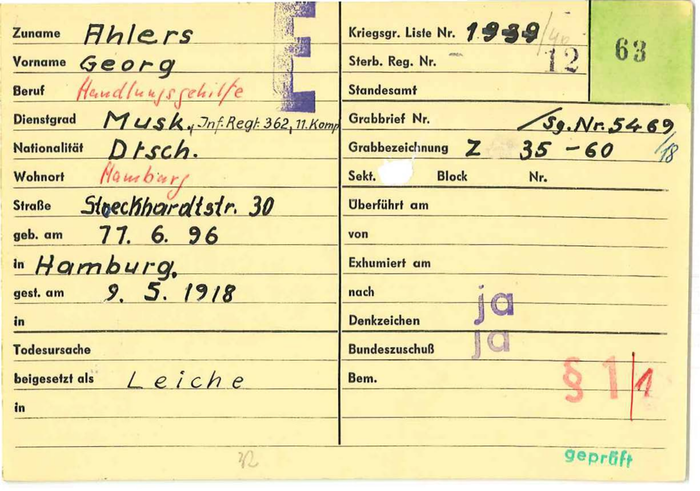 Zuname Ahlers
Vorname Georg
Beruf Handlungsgehilfe
Dienstgrad Musk., Inf. Regt. 362, 11. Komp
Nationalität Dtsch.
Wohnort Hamburg
Straße Stoeckhardtstr. 30
geb. am 11. 6. 96
in Hamburg.
gest. am 9. 5. 1918
in
Todesursache
beigesetzt als Leiche
in
Kriegsgr. Liste Nr. 1939
Sterb. Reg. Nr. 12
63
Standesamt
Grabbrief Nr. /Sg. Nr. 5469
Grabbezeichnung Z 35 - 60 /18
Sekt. Block Nr.
Überführt am
von
Exhumiert am
nach
Denkzeichen ja
Bundeszuschuß ja
Bem. § 1/1
geprüft